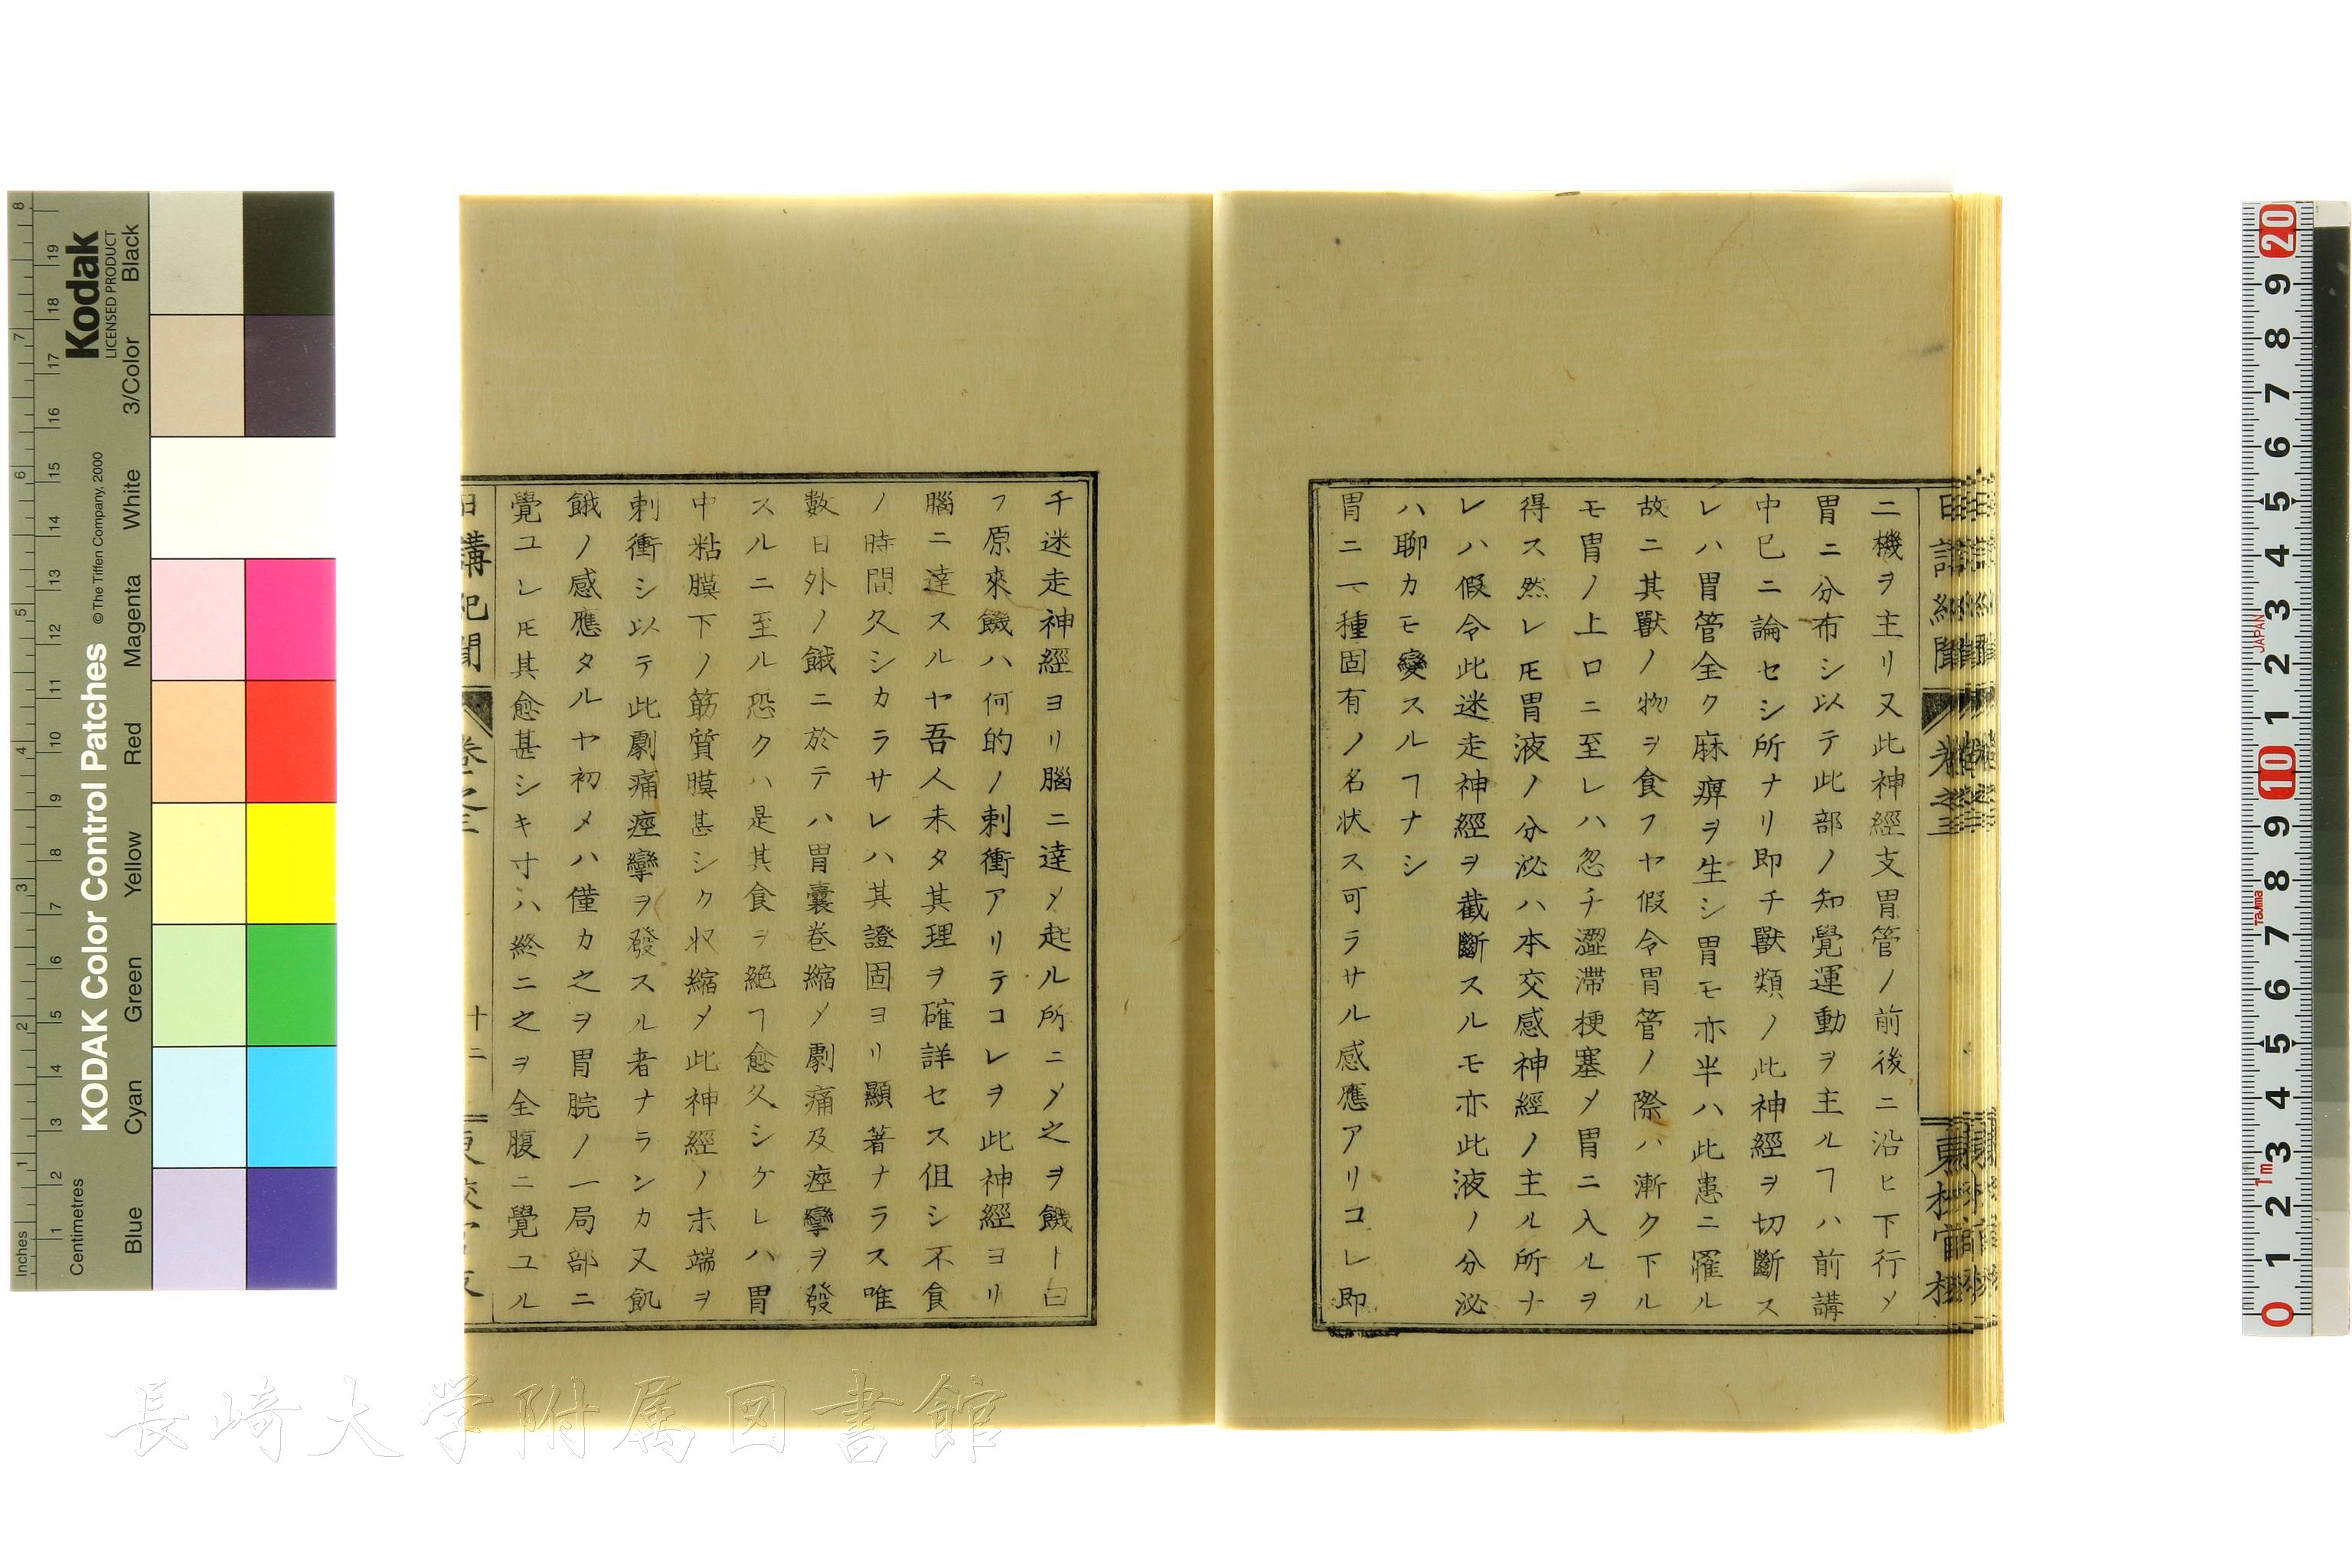 ニ機ヲ主リ又此神經支胃管ノ前後ニ沿ヒ下行〆
胃ニ分布シ以テ此部ノ知覺運動ヲ主ルヿハ前講
中已ニ論セシ所ナリ即チ獸類ノ此神經ヲ切斷ス
レハ胃管全ク麻痺ヲ生シ胃モ亦半ハ此患ニ罹ル
故ニ其獸ノ物ヲ食フヤ假令胃管ノ際ハ漸ク下ル
モ胃ノ上口ニ至レハ忽チ澀滯梗塞〆胃ニ入ルヲ
得ス然レ𪜈胃液ノ分泌ハ本交感神經ノ主ル所ナ
レハ假令此迷走神經ヲ截斷スルモ亦此液ノ分泌
ハ聊カモ變スルヿナシ
胃ニ一種固有ノ名状ス可ラサル感應アリコレ即
千迷走神經ヨリ腦ニ達〆起ル所ニ〆之ヲ饑ト曰
フ原來饑ハ何的ノ刺衝アリテコレヲ此神經ヨリ
腦ニ達スルヤ吾人未タ其理ヲ確詳セス伹シ不食
ノ時間久シカラサレハ其證固ヨリ顯著ナラス唯
數日外ノ餓ニ於テハ胃囊卷縮〆劇痛及痙攣ヲ發
スルニ至ル恐クハ是其食ヲ絶ヿ愈久シケレハ胃
中粘膜下ノ筋質膜甚シク収縮〆此神經ノ末端ヲ
刺衝シ以テ此劇痛痙攣ヲ發スル者ナランカ又飢
餓ノ感應タルヤ初メハ僅カ之ヲ胃脘ノ一局部ニ
覺ユレ𪜈其愈甚シキ寸ハ終ニ之ヲ全腹ニ覺ユル
日講紀聞 卷之三 十二
長崎大学附属図書館
Kodak
LICENSED PRODUCT
KODAK Color Control Patches
© The Tiffen Company, 2000
Inches
Centimetres
Blue Cyan Green Yellow Red Magenta White 3/Color Black
1 2 3 4 5 6 7 8
1 2 3 4 5 6 7 8 9 10 11 12 13 14 15 16 17 18 19
20 9 8 7 6 5 4 3 2 1 10 9 8 7 6 5 4 3 2 1 0
JAPAN
Tajima
1m